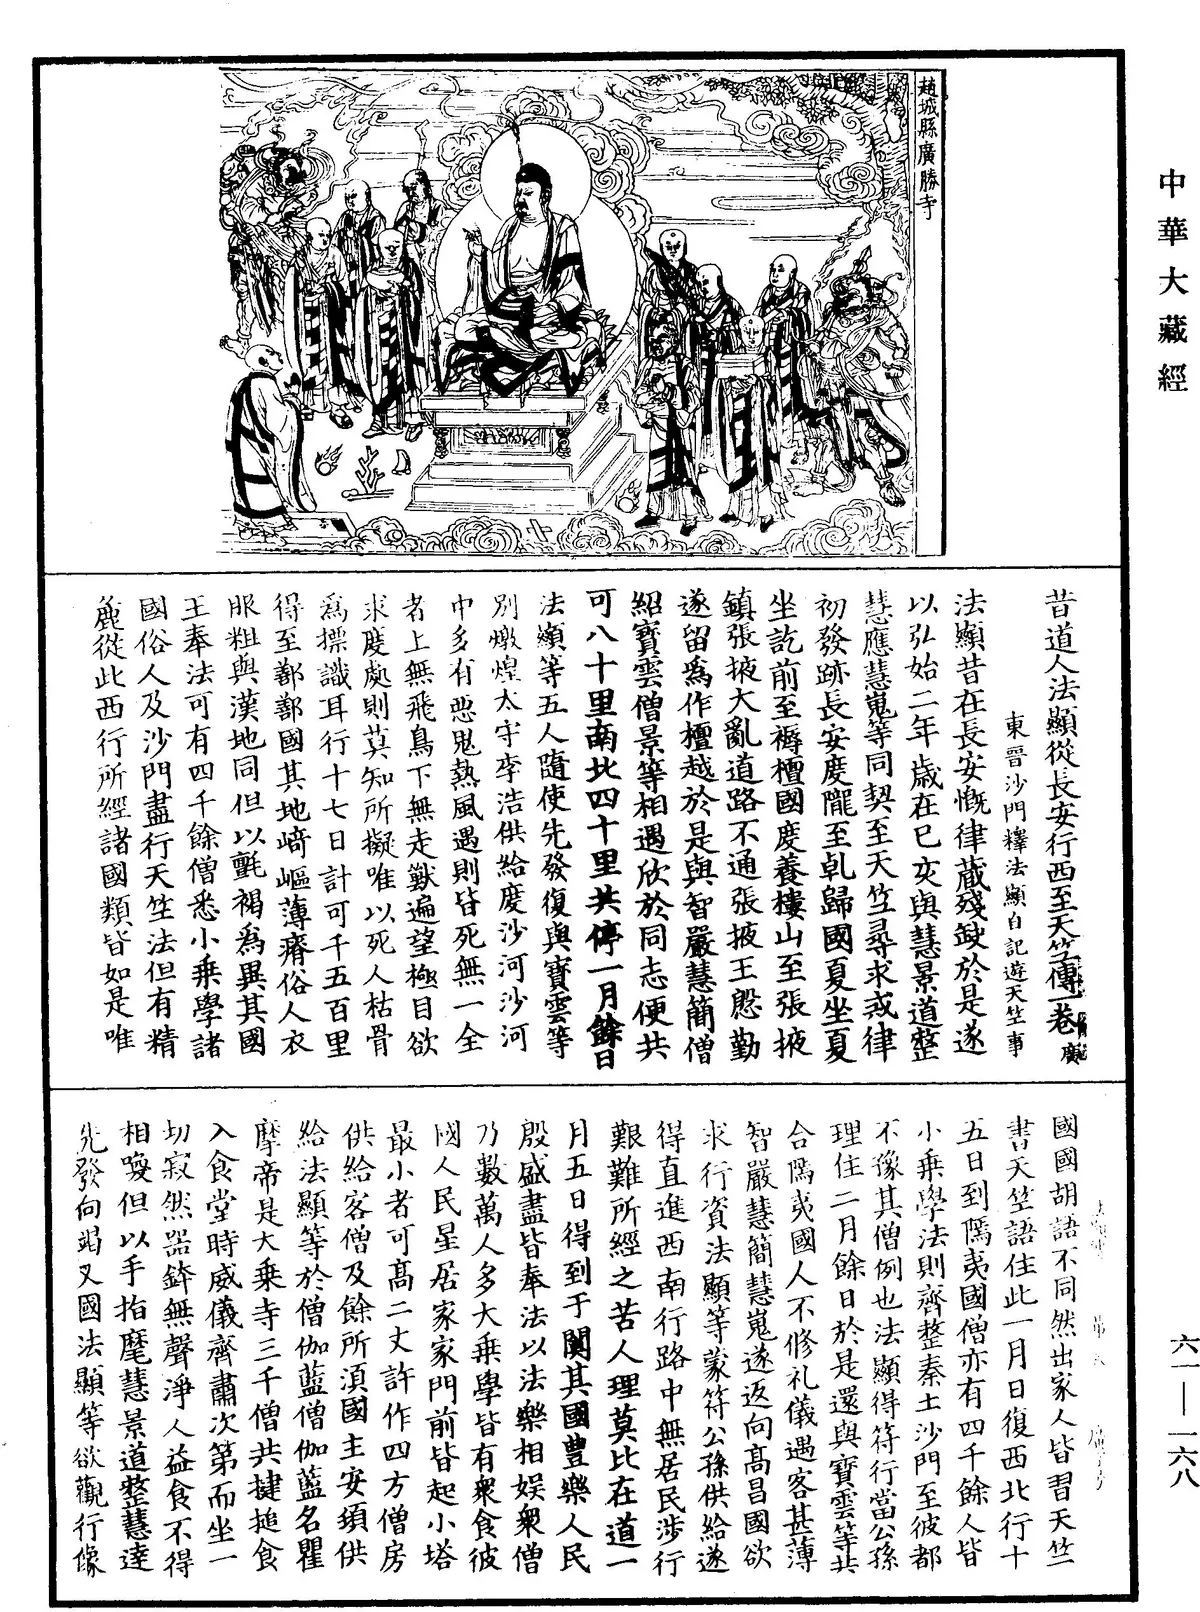 中華大藏經
趙城縣廣勝寺
昔道人法顯從長安行西至天竺傳一卷 廣
東晉沙門釋法顯自記遊天竺事
法顯昔在長安慨律藏殘缺於是遂
以弘始二年歲在己亥與慧景道整
慧應慧嵬等同契至天竺尋求戒律
初發跡長安度隴至乹歸國夏坐夏
坐訖前至褥檀國度養樓山至張掖
鎮張掖大亂道路不通張掖王慇勤
遂留為作檀越於是與智嚴慧簡僧
紹寶雲僧景等相遇欣於同志便共
可八十里南北四十里共停一月餘日
法顯等五人隨使先發復與寶雲等
別燉煌太守李浩供給度沙河沙河
中多有惡鬼熱風遇則皆死無一全
者上無飛鳥下無走獸遍望極目欲
求度處則莫知所擬唯以死人枯骨
為摽識耳行十七日計可千五百里
得至鄯鄯國其地﨑嶇薄瘠俗人衣
服粗與漢地同但以氈褐為異其國
王奉法可有四千餘僧悉小乘學諸
國俗人及沙門盡行天竺法但有精
麁從此西行所經諸國類皆如是唯
國國胡語不同然出家人皆習天竺
書天竺語住此一月日復西北行十
五日到㒄夷國僧亦有四千餘人皆
小乘學法則齊整秦土沙門至彼都
不豫其僧例也法顯得符行當公孫
理住二月餘日於是還與寶雲等共
合㒄夷國人不修礼儀遇客甚薄
智嚴慧簡慧嵬遂返向高昌國欲
求行資法顯等蒙符公孫供給遂
得直進西南行路中無居民涉行
艱難所經之苦人理莫比在道一
月五日得到于闐其國豊樂人民
殷盛盡皆奉法以法樂相娱衆僧
乃數萬人多大乘學皆有衆食彼
國人民星居家家門前皆起小塔
最小者可高二丈許作四方僧房
供給客僧及餘所湏國主安頓供
給法顯等於僧伽藍僧伽藍名瞿
摩帝是大乘寺三千僧共揵搥食
入食堂時威儀齊肅次第而坐一
切寂然器鉢無聲淨人益食不得
相喚但以手指麾慧景道整慧達
先發向竭叉國法顯等欲觀行像
六一—一六八